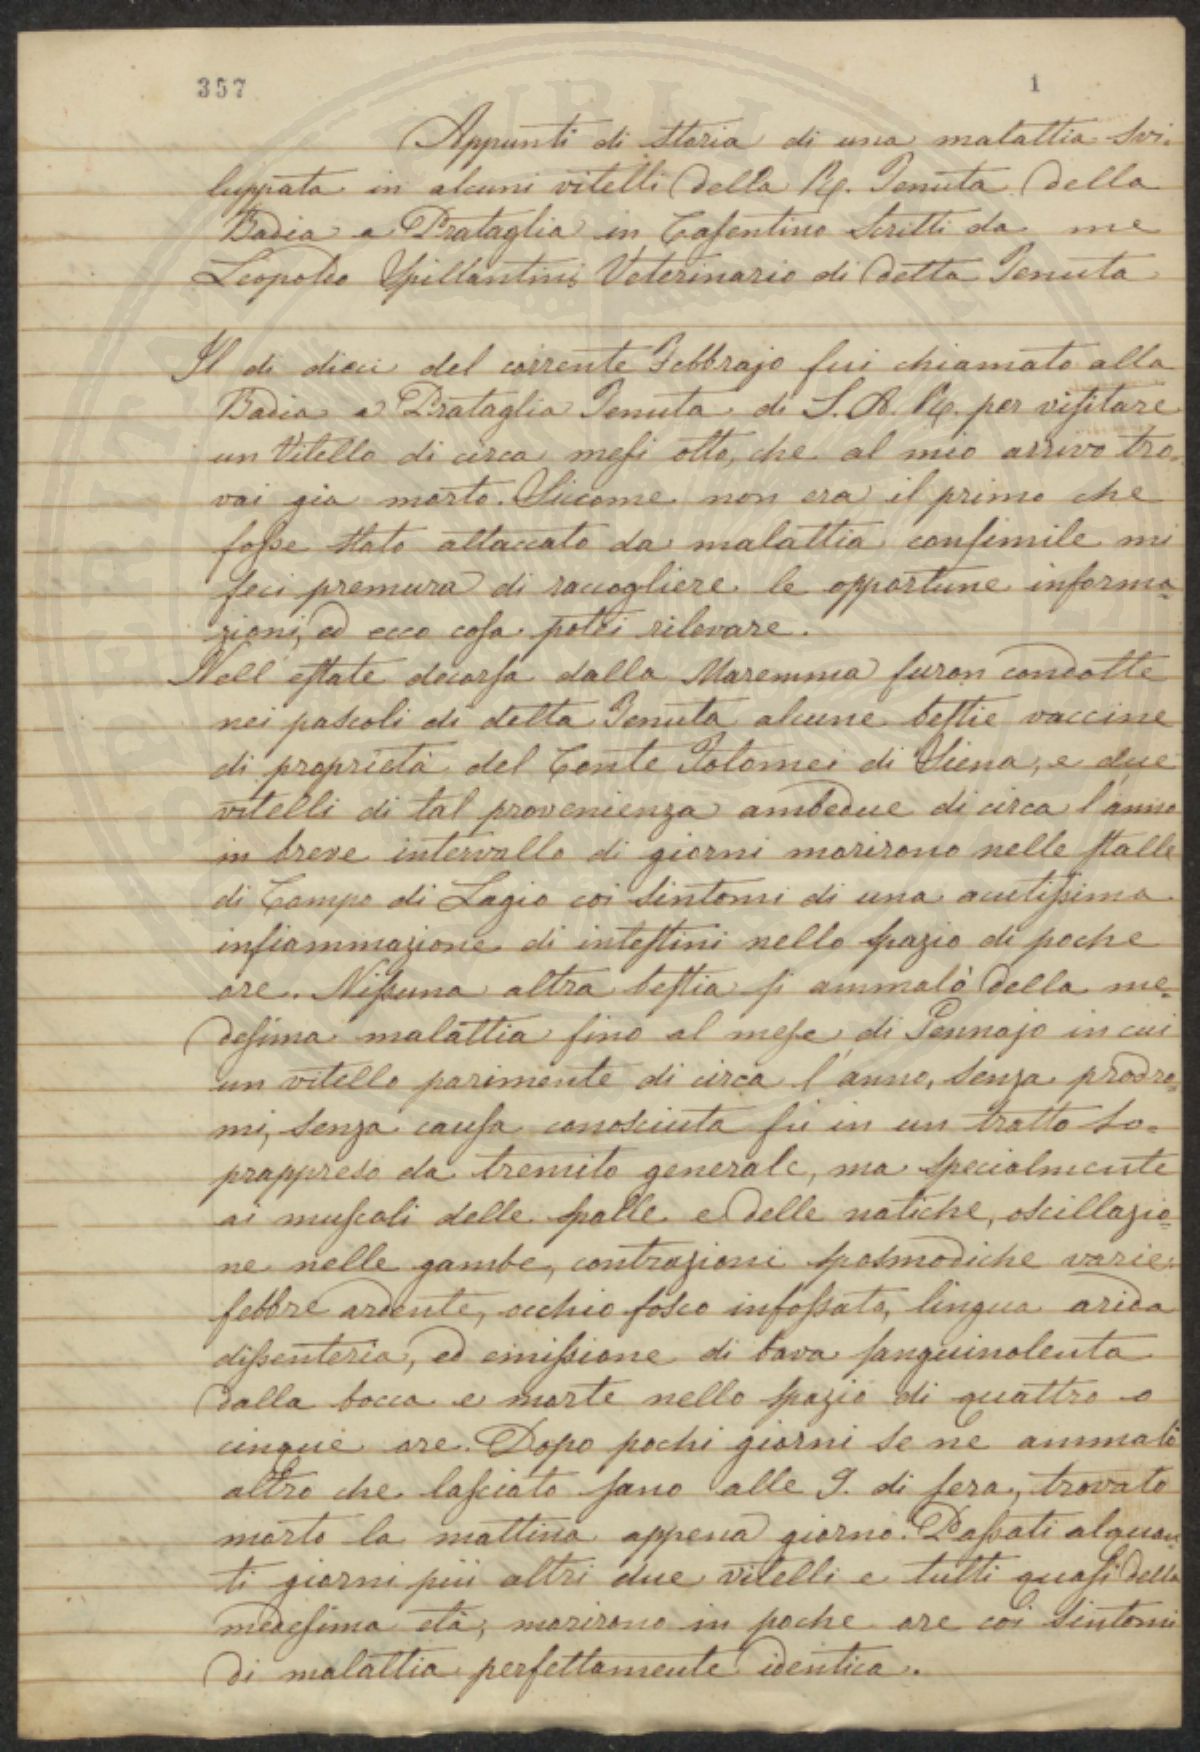 357
1
Appunti di storia di una malattia svi-
luppata in alcuni vitelli della R. Tenuta della
Badia a Prataglia in Casentino scritti da me
Leopoldo Spillantini Veterinario di detta Tenuta
Il di dieci del corrente Febbrajo fui chiamato alla
Badia a Prataglia Tenuta di S. A. R. per visitare
un Vitello di circa mesi otto, che al mio arrivo tro-
vai gia morto. Siccome non era il primo che
fosse stato attaccato da malattia consimile mi
feci premura di raccogliere le opportune informa-
zioni, ed ecco cosa potei rilevare.
Nell' estate decorsa dalla Maremma furon condotte
nei pascoli di detta Tenuta alcune bestie vaccine
di proprietà del Conte Tolomei di Siena, e due
vitelli di tal provenienza ambedue di circa l'anno
in breve intervallo di giorni morirono nelle stalle
di Campo di Lagio coi sintomi di una acutissima
infiammazione di intestini nello spazio di poche
ore. Nissuna altra bestia si ammalò della me-
desima malattia fino al mese di Gennajo in cui
un vitello parimente di circa l'anno, senza prodro-
mi, senza causa conosciuta fù in un tratto so-
prappreso da tremito generale, ma specialmente
ai muscoli delle spalle e delle natiche, oscillazio-
ne nelle gambe, contrazioni spasmodiche varie,
febbre ardente, occhio fosco infossato, lingua arida
dissenteria, ed emissione di bava sanguinolenta
dalla bocca e morte nello spazio di quattro o
cinque ore. Dopo pochi giorni se ne ammalò
altro che lasciato sano alle 9. di sera, trovato
morto la mattina appena giorno. Passati alquan-
ti giorni più altri due vitelli e tutti quasi della
medesima età, morirono in poche ore coi sintomi
di malattia perfettamente identica.